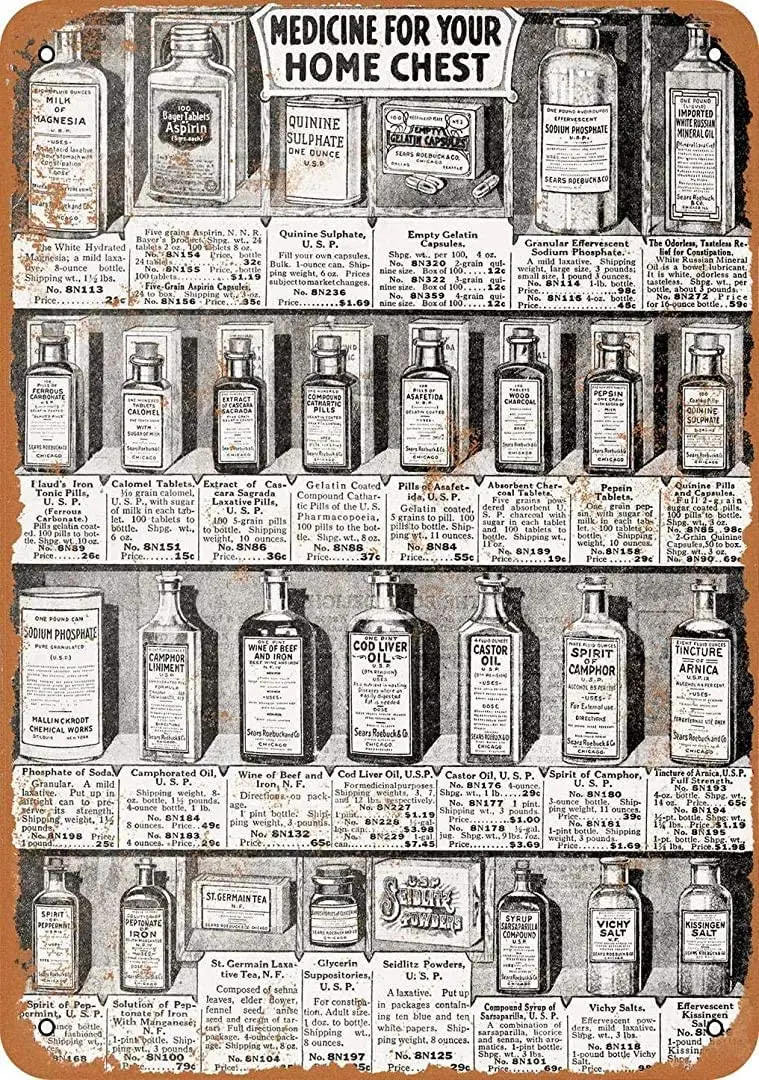 MEDICINE FOR YOUR
HOME CHEST
MILK
OF
MAGNESIA
U.S.P.
-USES-
DOSE
CHICAGO
100
Bayer Tablets
Aspirin
(5 grs. each)
QUININE
SULPHATE
ONE OUNCE
U.S.P.
100
No 2
EMPTY
GELATIN CAPSULES
SEARS ROEBUCK & CO.
DALLAS
CHICAGO
SEATTLE
ONE POUND AVOIRDUPOIS
EFFERVESCENT
SODIUM PHOSPHATE
U.S.P.
SEARS ROEBUCK & CO
ONE POUND
(LIQUID)
IMPORTED
WHITE RUSSIAN
MINERAL OIL
Sears Roebuck
& Co.
The White Hydrated
Magnesia; a mild laxa-
tive. 8-ounce bottle.
Shipping wt., 1½ lbs.
No. 8N113
Price
Five grains Aspirin, N. N. R.
Bayer's product. Shpg. wt., 24
tablets 2 oz., 100 tablets 8 oz.
No. 8N154 Price, bottle
24 tablets 32c
No. 8N155 Price, bottle
100 tablets $1.19
Five-Grain Aspirin Capsules,
24 to box. Shipping wt., 3 oz.
No. 8N156 - Price 35c
Quinine Sulphate,
U. S. P.
Fill your own capsules.
Bulk. 1-ounce can. Ship-
ping weight, 6 oz. Prices
subject to market changes.
No. 8N236
Price $1.69
Empty Gelatin
Capsules.
Shpg. wt., per 100, 4 oz.
No. 8N320 2-grain qui-
nine size. Box of 100 12c
No. 8N322 3-grain qui-
nine size. Box of 100 12c
No. 8N359 4-grain qui-
nine size. Box of 100 12c
Granular Effervescent
Sodium Phosphate.
A mild laxative. Shipping
weight, large size, 3 pounds;
small size, 1 pound 3 ounces.
No. 8N114 1-lb. bottle.
Price 98c
No. 8N116 4-oz. bottle.
Price 45c
The Odorless, Tasteless Re-
lief for Constipation.
White Russian Mineral
Oil is a bowel lubricant.
It is white, odorless and
tasteless. Shpg. wt., per
bottle, about 3 pounds.
No. 8N272 Price
for 16-ounce bottle 59c
100
PILLS OF
FERROUS
CARBONATE
U.S.P.
SEARS ROEBUCK & CO
CHICAGO
ONE HUNDRED
TABLETS
CALOMEL
WITH
SUGAR OF MILK
CHICAGO
EXTRACT
OF CASCARA
SAGRADA
CHICAGO
COMPOUND
CATHARTIC
PILLS
CHICAGO
PILLS OF
ASAFETIDA
U.S.P.
GELATIN COATED
Sears Roebuck & Co
CHICAGO
TABLETS
WOOD
CHARCOAL
CHICAGO
PEPSIN
CHICAGO
QUININE
SULPHATE
CHICAGO
Blaud's Iron
Tonic Pills,
U. S. P.
(Ferrous
Carbonate.)
Pills gelatin coat-
ed. 100 pills to bot-
tle. Shpg. wt. 10 oz.
No. 8N89
Price 26c
Calomel Tablets.
⅒ grain calomel,
U. S. P., with sugar
of milk in each tab-
let. 100 tablets to
bottle. Shpg. wt.,
6 oz.
No. 8N151
Price 15c
Extract of Cas-
cara Sagrada
Laxative Pills,
U. S. P.
100 5-grain pills
to bottle. Shipping
weight, 10 ounces.
No. 8N86
Price 36c
Gelatin Coated
Compound Cathar-
tic Pills of the U. S.
Pharmacopoeia.
100 pills to the bot-
tle. Shpg. wt., 8 oz.
No. 8N88
Price 37c
Pills of Asafet-
ida, U. S. P.
Gelatin coated,
5 grains to pill. 100
pills to bottle. Ship-
ping wt., 11 ounces.
No. 8N84
Price 55c
Absorbent Char-
coal Tablets.
Five grains pow-
dered absorbent U.
S. P. charcoal with
sugar in each tablet
and 100 tablets to
bottle. Shipping wt.,
11 oz.
No. 8N139
Price 19c
Pepsin
Tablets.
One grain pep-
sin with sugar of
milk in each tab-
let. 100 tablets to
bottle. Shipping
weight, 10 ounces.
No. 8N158
Price 29c
Quinine Pills
and Capsules.
Full 2-grain
sugar coated pills.
100 pills to bottle.
Shpg. wt., 3 oz.
No. 8N85, 98c
2-Grain Quinine
Capsules, 50 to box.
Shpg. wt., 3 oz.
No. 8N90 69c
ONE POUND CAN
SODIUM PHOSPHATE
PURE GRANULATED
(U.S.P.)
MALLINCKRODT
CHEMICAL WORKS
ST. LOUIS NEW YORK
CAMPHOR
LINIMENT
U.S.P.
FORMULA
CHICAGO
ONE PINT
WINE OF BEEF
AND IRON
BEEF, WINE AND IRON
N.F. IV
Sears Roebuck and Co
CHICAGO
ONE PINT
COD LIVER
OIL
U.S.P.
USES
DOSE
Sears Roebuck & Co.
CHICAGO
4 FLUID OUNCES
CASTOR
OIL
U.S.P.
-USES-
DOSE
Sears Roebuck & Co.
CHICAGO
SPIRIT
OF
CAMPHOR
U.S.P.
ALCOHOL 85 PERCENT
-USES-
For External use.
DIRECTIONS
Sears Roebuck & Co.
CHICAGO
EIGHT FLUID OUNCES
TINCTURE
OF
ARNICA
U.S.P. IX
-USES-
FOR EXTERNAL USE ONLY
DIRECTIONS
Sears Roebuck & Co.
CHICAGO
Phosphate of Soda.
Granular. A mild
laxative. Put up in
airtight can to pre-
serve its strength.
Shipping weight, 1½
pounds.
No. 8N198 Price,
1 pound 25c
Camphorated Oil,
U. S. P.
Shipping weight, 8-
oz. bottle, 1½ pounds.
4-ounce bottle, 1 lb.
No. 8N184
8 ounces. Price 49c
No. 8N183
4 ounces. Price 29c
Wine of Beef and
Iron, N. F.
Directions on pack-
age.
1 pint bottle. Ship-
ping weight, 3 pounds.
No. 8N132
Price 65c
Cod Liver Oil, U.S.P.
For medicinal purposes.
Shipping weights, 3, 7,
and 12 lbs. respectively.
No. 8N227
1 pint $1.19
No. 8N228 ½-gal-
lon can $3.98
No. 8N229 1-gal.
can $7.45
Castor Oil, U. S. P.
No. 8N176 4-ounce.
Shpg. wt., 1 lb. 29c
No. 8N177 1 pint.
Shipping wt., 3 pounds.
Price $1.00
No. 8N178 ½-gal.
jug. Shpg. wt., 9 lbs. 7 oz.
Price $3.69
Spirit of Camphor,
U. S. P.
No. 8N180
3-ounce bottle. Ship-
ping weight, 11 ounces.
Price 39c
No. 8N181
1-pint bottle. Shipping
weight, 3 pounds.
Price $1.69
Tincture of Arnica, U.S.P.
Full Strength.
No. 8N193
4-oz. bottle. Shpg. wt.,
14 oz. Price 65c
No. 8N194
½-pt. bottle. Shpg. wt.,
1¾ lbs. Price $1.19
No. 8N195
1-pt. bottle. Shpg. wt.,
Price $1.98
SPIRIT
OF
PEPPERMINT
CHICAGO
PEPTONATE
OF
IRON
DOSE
CHICAGO
ST. GERMAIN TEA
N.F.
SEARS ROEBUCK & CO CHICAGO
CHICAGO
U.S.P.
SEIDLITZ
POWDERS
SYRUP
SARSAPARILLA
COMPOUND
U.S.P.
Sears Roebuck & Co
CHICAGO
VICHY
SALT
CHICAGO
KISSINGEN
SALT
CHICAGO
Spirit of Pep-
permint, U. S. P.
bottle.
8N168
Solution of Pep-
tonate of Iron
With Manganese,
N. F.
1-pint bottle. Ship-
ping weight, 3 pounds.
No. 8N100
Price 79c
St. Germain Laxa-
tive Tea, N. F.
Composed of senna
leaves, elder flower,
fennel seed, anise
seed and cream of tar-
tar. Full directions on
package. 4-ounce pack-
age. Shipping wt., 8 oz.
No. 8N104
Glycerin
Suppositories,
U. S. P.
For constipa-
tion. Adult size.
1 doz. to bottle.
Shipping wt.,
8 ounces.
No. 8N197
Seidlitz Powders,
U. S. P.
A laxative. Put up
in packages contain-
ing ten blue and ten
white papers. Ship-
ping weight, 8 ounces.
No. 8N125
Compound Syrup of
Sarsaparilla, U. S. P.
A combination of
sarsaparilla, licorice
and senna, with aro-
matics. 1-pint bottle.
Shpg. wt. 3 lbs.
No. 8N101
Price 69c
Vichy Salts.
Effervescent pow-
ders, mild laxative.
Shipping wt., 3 lbs.
No. 8N118
1-pound bottle Vichy
Salt. 98c
Effervescent
Kissingen
Salt
No. 8N
1-pound
Kissin
Price